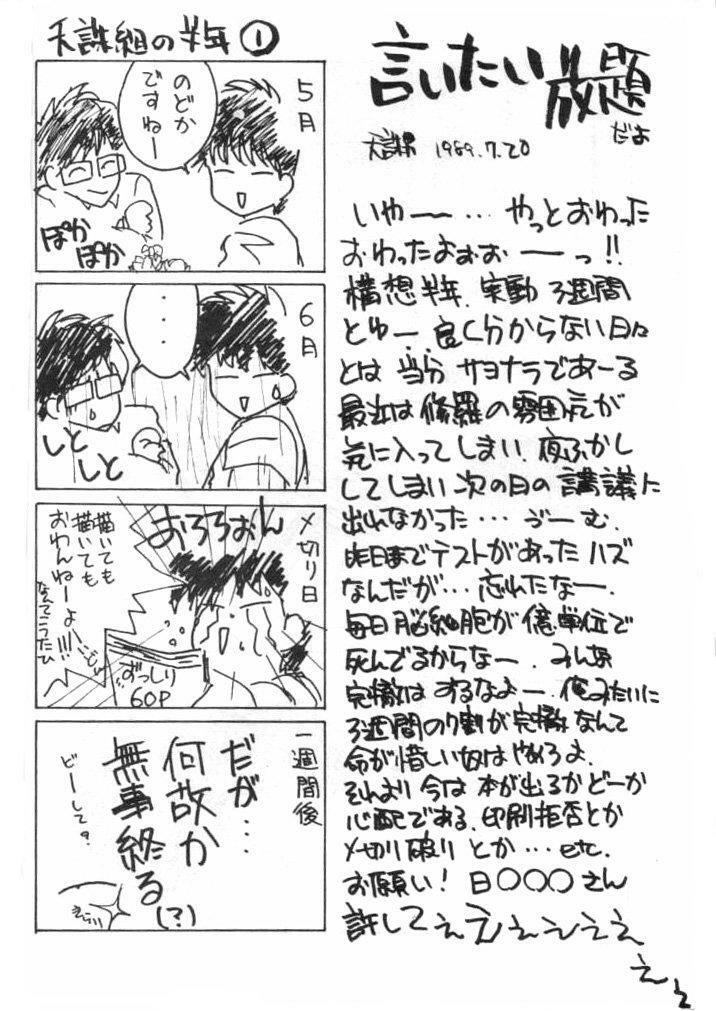 天誅組の半年①
5月
のどか
ですねー
ぽか
ぽか
6月
・・・
しと
しと
〆切り日
おろろぉん
描いても
描いても
おわんねーよ!!!
なんてこったひ
ずっしり
60P
一週間後
だが…
何故か
無事終る
(?)
どーして?
言いたい放題
だよ
1989.7.20
いやー…やっとおわった
おわったよぉぉーっ!!
構想半年、実動3週間
とゆー、良く分からない日々
とは当分サヨナラであーる
最近は修羅の雰囲気が
気に入ってしまい、夜ふかし
してしまい次の日の講議に
出れなかった…うーむ、
昨日までテストがあったハズ
なんだが…忘れたなー、
毎日脳細胞が億単位で
死んでるからなー、みんな
完徹はするなよー、俺みたいに
3週間の9割が完徹なんて
命が惜しい奴はやめろよ、
それより今は本が出るかどーか
心配である、印刷拒否とか
〆切り破りとか…etc.
お願い!日○○○さん
許してぇえぇぇぇぇ
ぇぇ